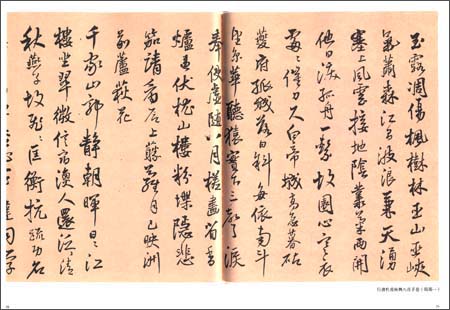 玉露凋傷楓樹林巫山巫峽
氣蕭森江間波浪兼天湧
塞上風雲接地陰叢菊兩開
他日淚孤舟一繫故園心寒衣
處處催刀尺白帝城高急暮砧
夔府孤城落日斜每依南斗
望京華聽猿實下三聲淚
奉使虛隨八月槎畫省香
爐違伏枕山樓粉堞隱悲
笳請看石上藤蘿月已映洲
前蘆荻花
千家山郭靜朝暉日日江
樓坐翠微信宿漁人還汎汎清
秋燕子故飛飛匡衡抗疏功名
心事違同學
行書杜甫秋興八首手卷（局部一）